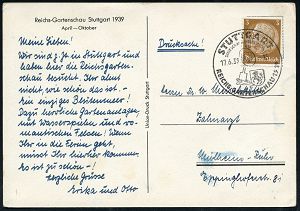 Reichs-Gartenschau Stuttgart 1939
April – Oktober
Meine Lieben!
Wir sind z. Zt. in Stuttgart und
haben hier die Reichsgarten-
schau besucht. Ihr ahnt
nicht, wie schön das ist -
ein einziges Blütenmeer!
Dazu herrliche Gartenanlagen,
mit Wasserspielen und ro-
mantischen Terrassen! Wenn
Ihr in die Ferien geht,
müsst Ihr hierher kommen,
es ist zu schön! -
Herzliche Grüsse
Erika und Otto
Union-Druck Stuttgart
Drucksache!
STUTTGART
17.6.39
REICHSGARTENSCHAU
Deutsches Reich
Herrn Dr. W.
Zahnarzt
Mülheim-Ruhr
Eppinghoferstr.